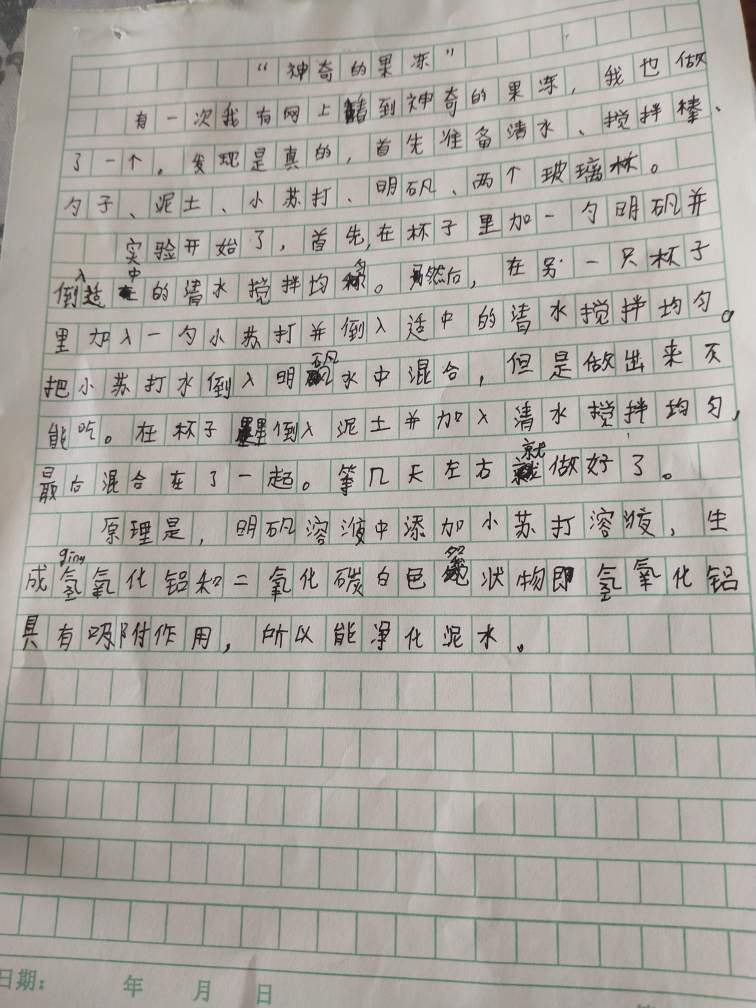 “神奇的果冻”
有一次我有网上看到神奇的果冻，我也做
了一个。发现是真的，首先准备清水、搅拌棒、
勺子、泥土、小苏打、明矾、两个玻璃杯。
实验开始了，首先，在杯子里加一勺明矾并
倒入适中的清水搅拌均匀。然后，在另一只杯子
里加入一勺小苏打并倒入适中的清水搅拌均匀。
把小苏打水倒入明矾水中混合，但是做出来不
能吃。在杯子里倒入泥土并加入清水搅拌均匀，
最后混合在了一起。等几天左右就做好了。
原理是，明矾溶液中添加小苏打溶液，生
成氢(qing)氧化铝和二氧化碳白色状物即氢氧化铝
具有吸附作用，所以能净化泥水。
日期： 年 月 日